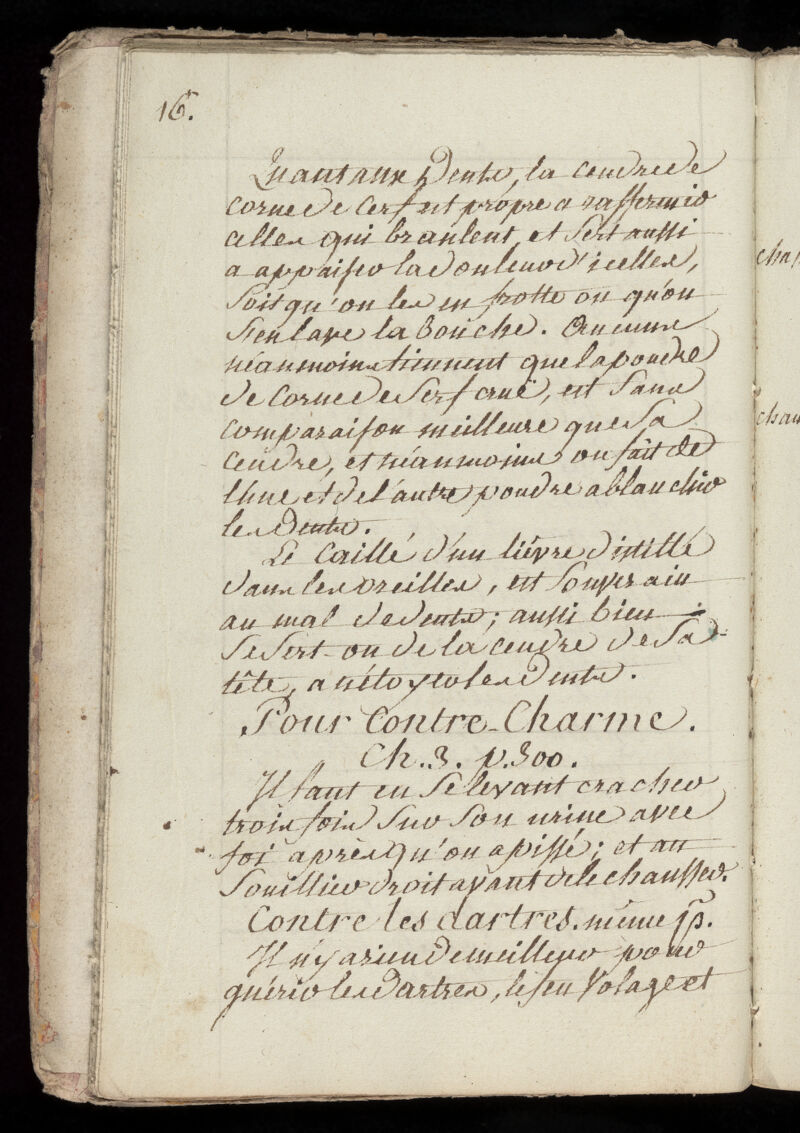 16.
Quant aux Dents, la cendre de
corne de cerf est propre a raffermir
celles qui branlent et sert aussi
a appaiser la douleur d'icelles,
soit qu'on les en frotte ou qu'on
s'en lave la bouche. Aucuns
néanmoins tiennent que la poudre
de corne de serf crue, est sans
comparaison meilleure que sa
cendre, et néanmoins on fait de
l'une et de l'autre poudre a blanchir
les Dents.
Le caillé d'un lièvre distillé
dans les oreilles, est souverain
au mal de dents; aussi bien
se sert-on de la cendre de sa
tête, a nétoyer les dents.
Pour Contre-Charme.
Ch. 3. p. 300.
Il faut en se levant cracher
trois fois sur son urine avec
foi après qu'on a pissé; et au
Souillier droit avant de le chausser.
Contre les dartres. même p.
Il n'y a rien de meilleur pour
guérir les dartres, le feu Volage et